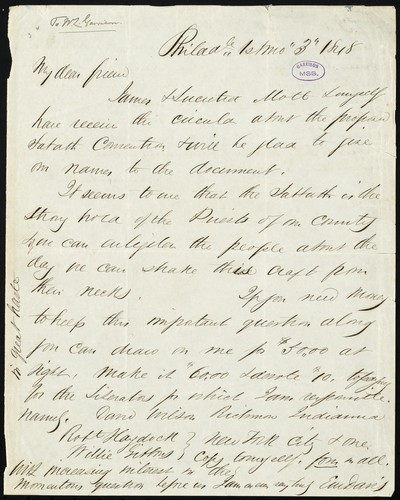 To W L Garrison
Philad 1st Mo 3d 1848
GARRISON
MSS.
My dear friend
James & Lucretia Mott & myself
have received the circular about the proposed
Sabbath Convention & will be glad to give
our names to the document.
It seems to me that the Sabbath is the
strong hold of the Priests of our Country
& you can enlighten the people about the
day we can shake this craft from
their necks. If you need Money
to keep this important question along
you can draw on me for $50,00 at
sight, make it $60,00 & devote $10,
for the Liberator for which I am responsible
namely. David Wilson Richmond Indianna
Robt Haydock New York City & one
Willie Gibbons Copy to myself. for in all
With increasing interest in the
Momentous Question before us I am
in great haste